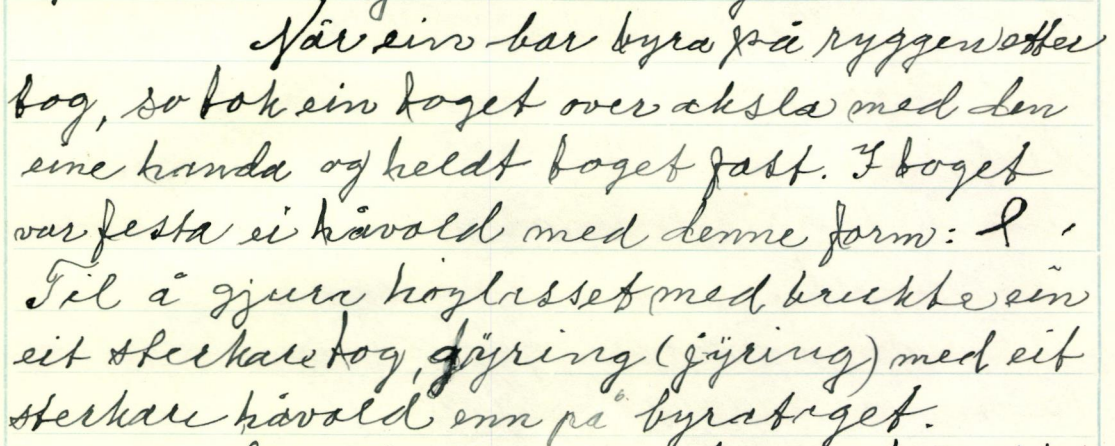 Når ein bar byra på ryggen etter
tog, so tok ein toget over aksla med den
eine handa og heldt toget fast. I toget
var festa ei håvold med denne form:
Til å gjura høylasset med brukte ein
eit sterkare tog, gÿring (jÿring) med eit
sterkare håvold enn på byratoget.